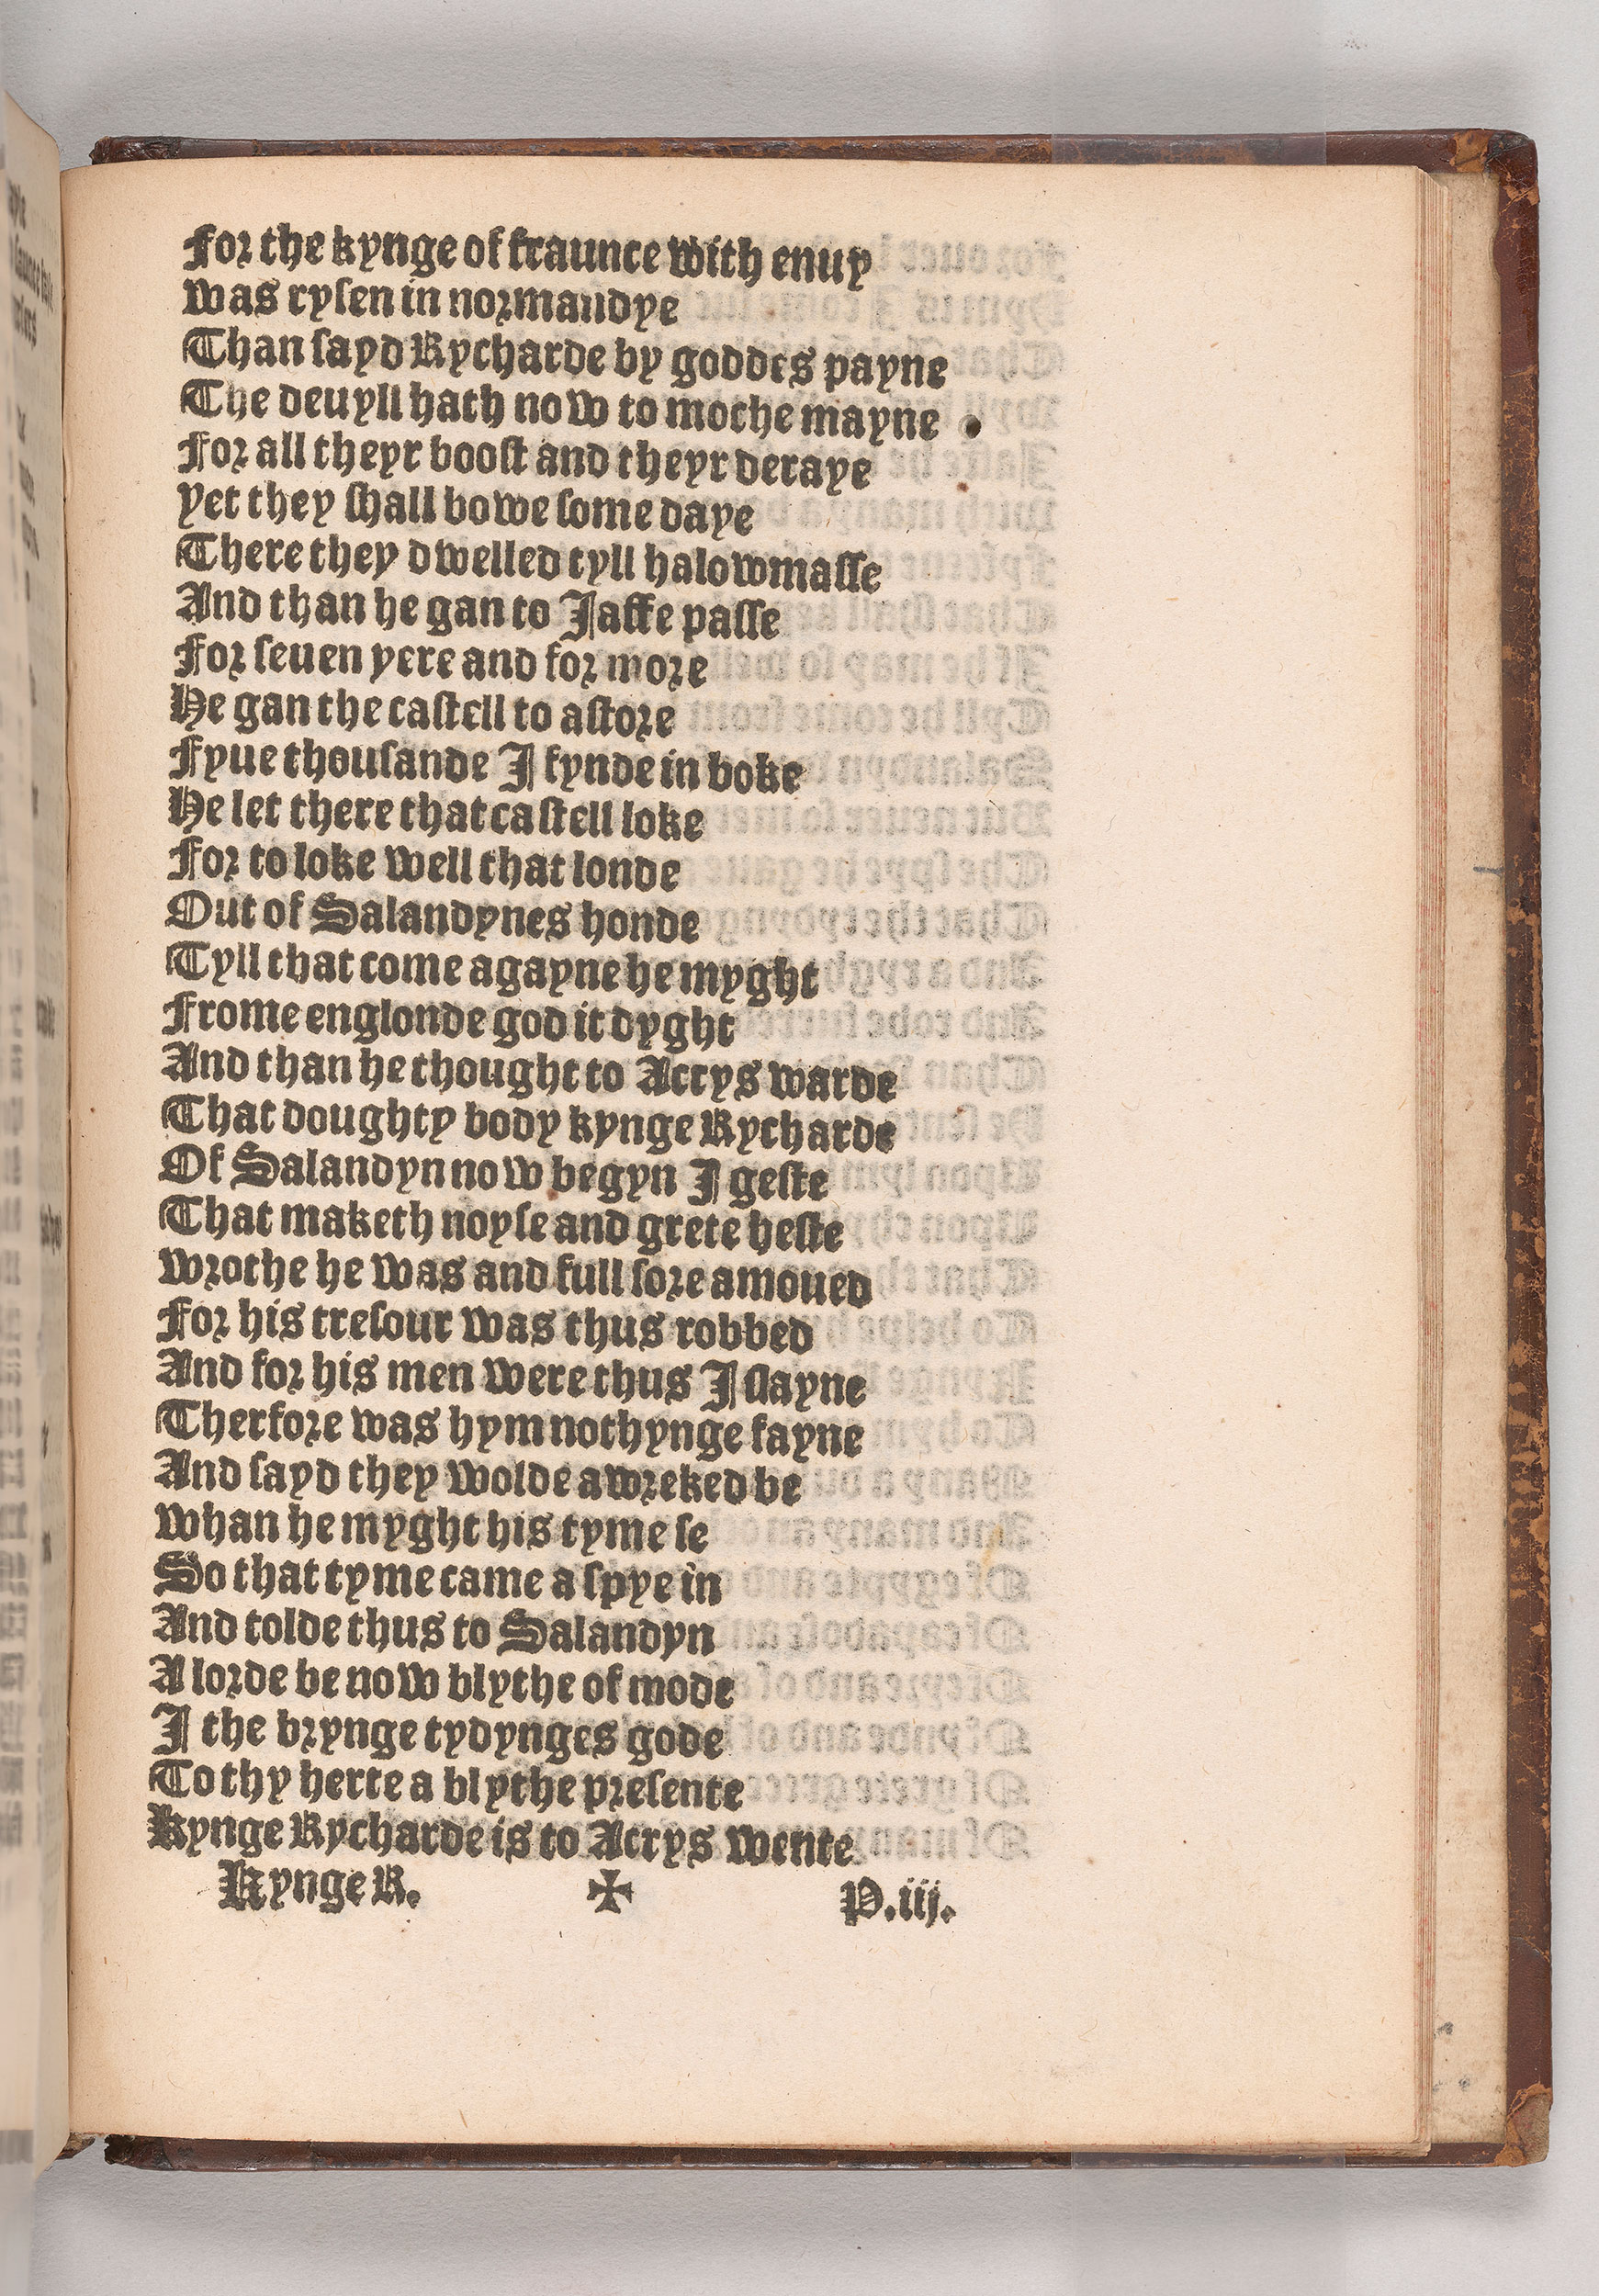 For the kynge of fraunce with enuy
was rysen in normandye
Than sayd Rycharde by goddes payne
The deuyll hath now to moche mayne
For all theyr boost and theyr deraye
yet they shall bowe some daye
There they dwelled tyll halowmasse
And than he gan to Jaffe passe
For seuen yere and for more
He gan the castell to astore
Fyue thousande J fynde in boke
He let there that castell loke
For to loke well that londe
Out of Salandynes honde
Tyll that come agayne he myght
Frome englonde god it dyght
And than he thought to Acrys warde
That doughty body kynge Rycharde
Of Salandyn now begyn J geste
That maketh noyse and grete beste
wrothe he was and full sore amoued
For his tresour was thus robbed
And for his men were thus J slayne
Therfore was hym nothynge fayne
And sayd they wolde awreked be
whan he myght his tyme se
So that tyme came a spye in
And tolde thus to Salandyn
A lorde be now blythe of mode
J the brynge tydynges gode
To thy herte a blythe presente
Kynge Rycharde is to Acrys wente
Kynge R. ✠ P.iij.